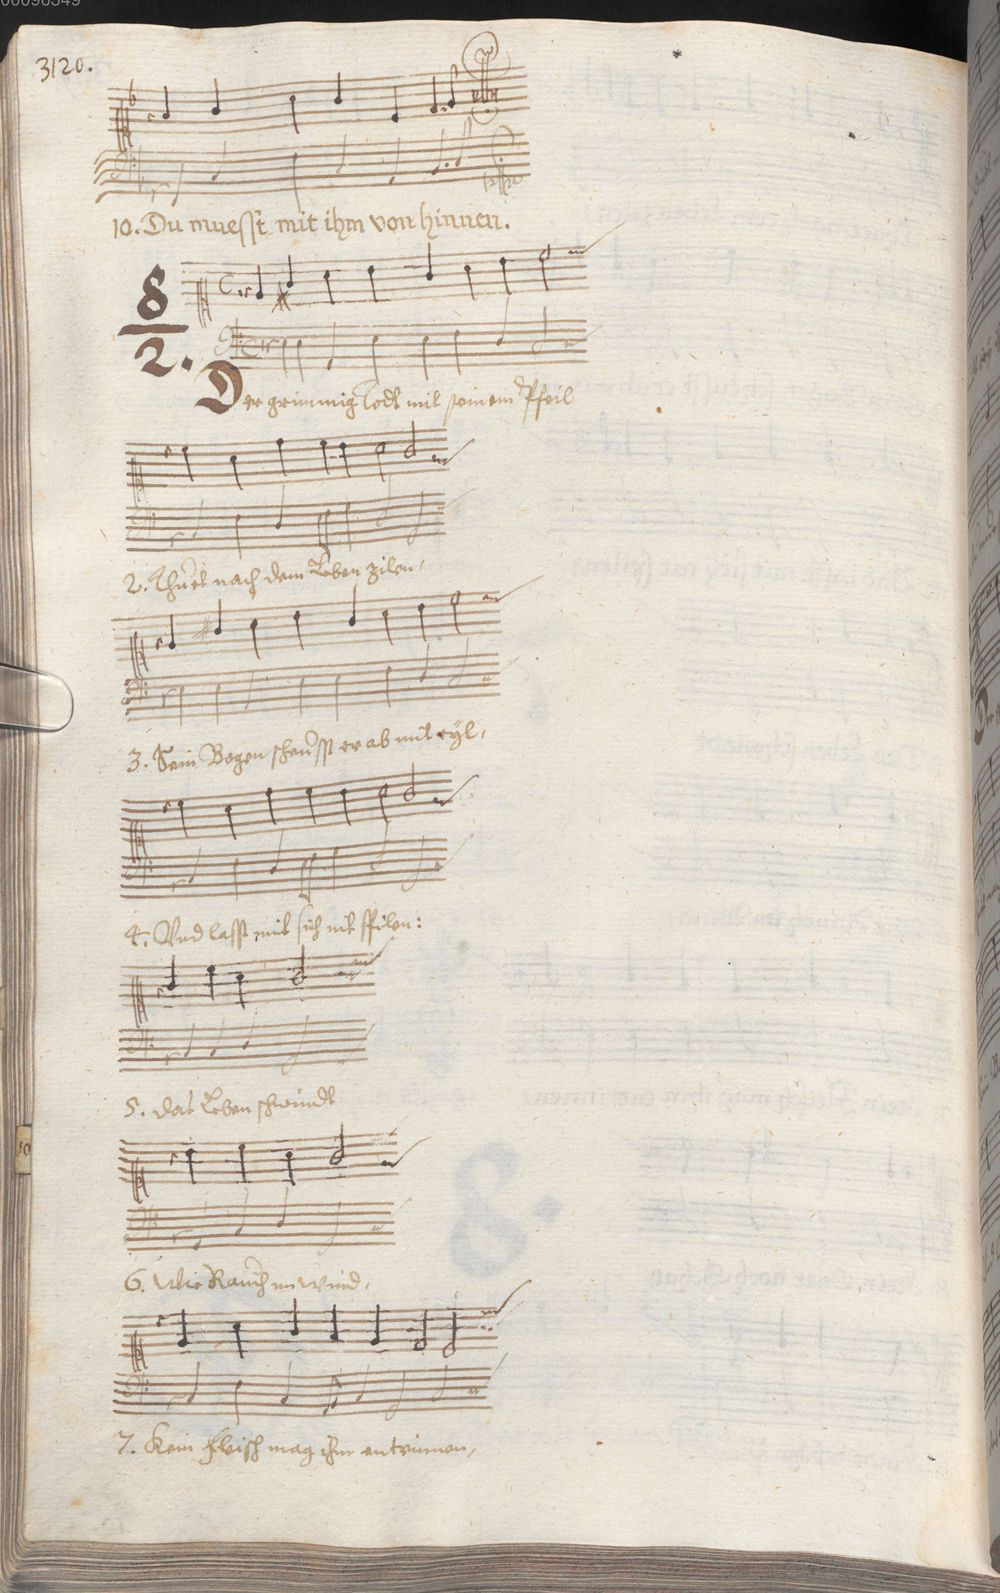 00098349
3120.
10. Du muesst mit ihm von hinnen.
8
2.
Der grimmig Todt mit seinem Pfeil
2. Thuet nach dem Leben zilen,
3. Sein Bogen scheusst er ab mit eyl,
4. Und lasst mit sich nit spilen:
5. das Leben schwindt
6. Wie Rauch im Wind,
7. Kein Fleisch mag ihm entrinnen,